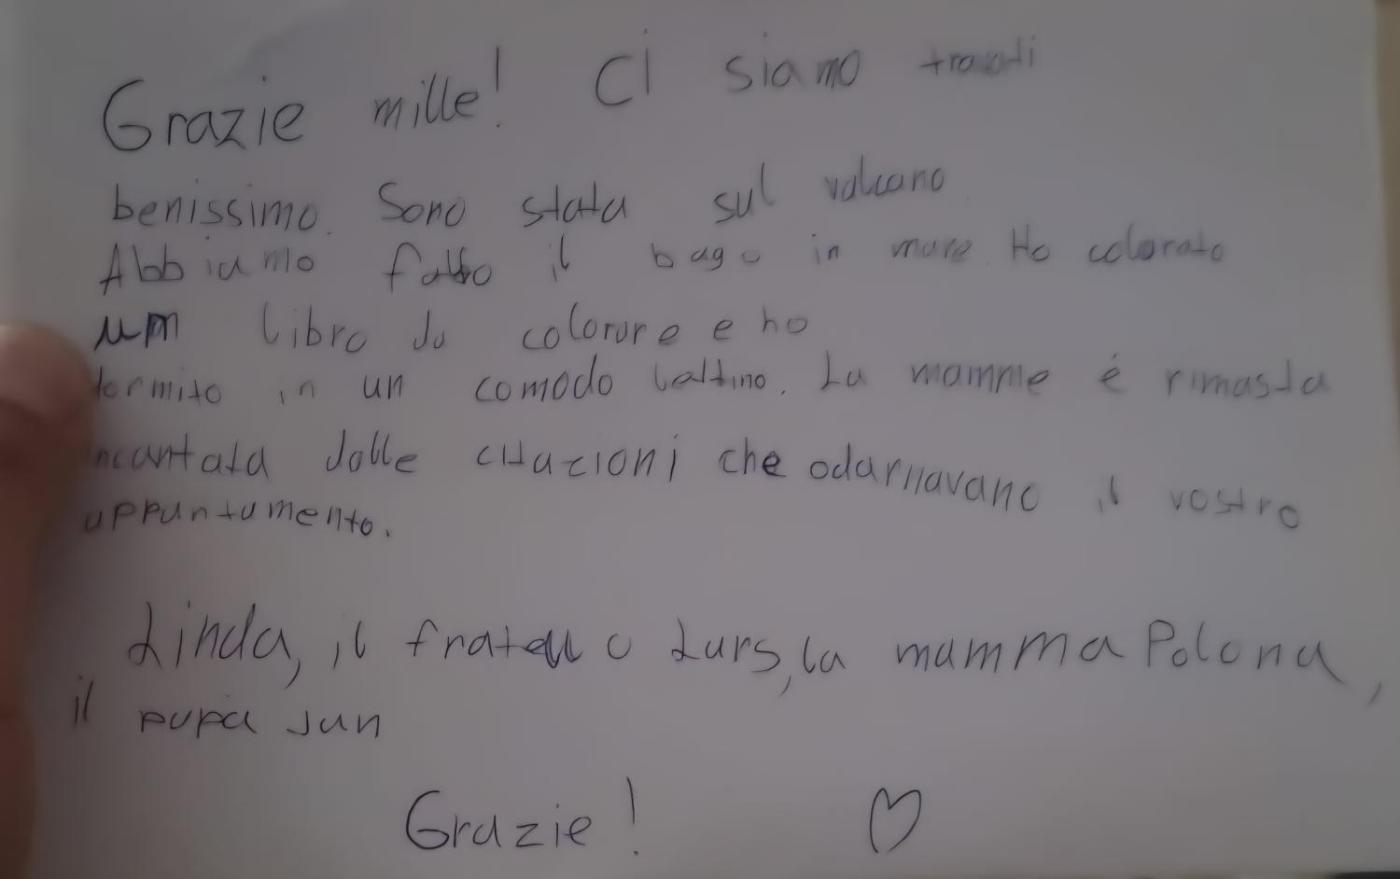 Grazie mille! Ci siamo trovati
benissimo. Sono stata sul valcano
Abbiamo fatto il bago in mare Ho colorato
um libro da colorare e ho
dormito in un comodo lettino. La mamme é rimasta
incantata dalle citazioni che odarnavano il vostro
appuntamento.
Linda, il fratello Lars, la mamma Polona,
il papa Jan
Grazie!